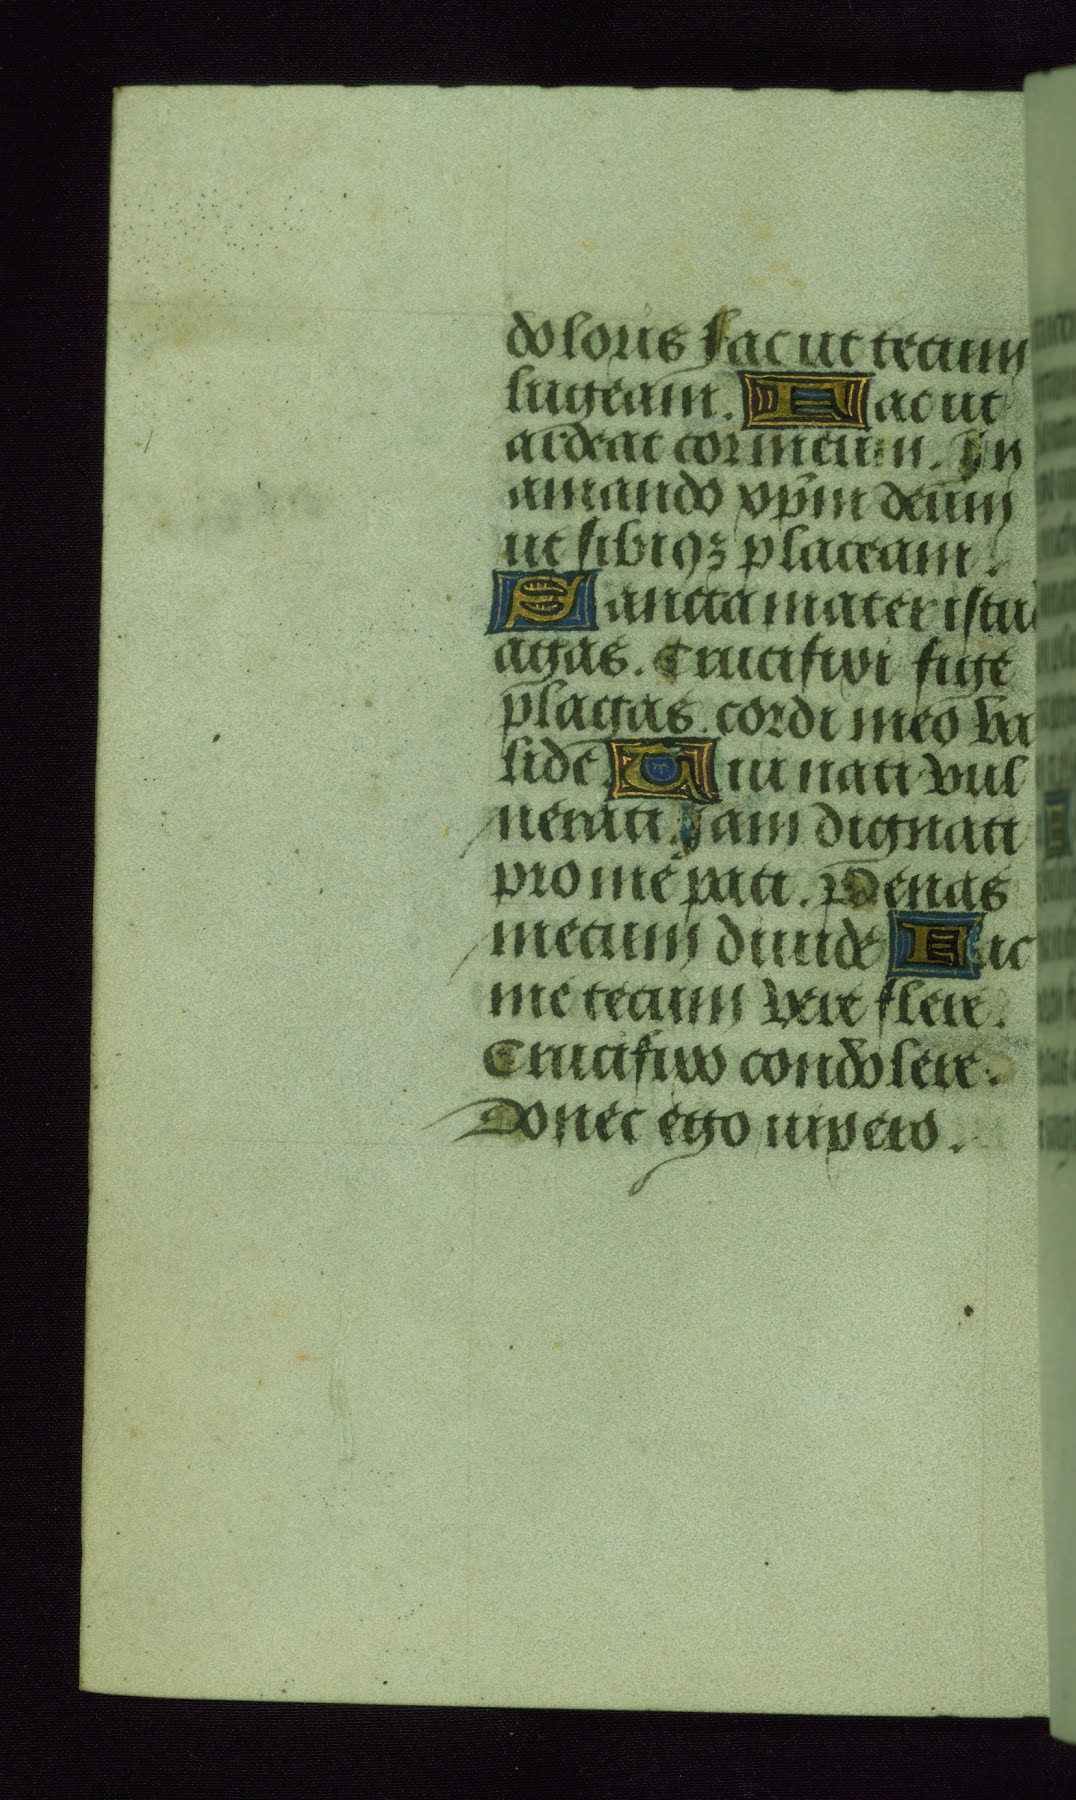 doloris fac ut tecum
lugeam. Fac ut
ardeat cor meum. In
amando xp̄m deum
ut sibiqȝ placeam.
Sancta mater istud
agas. Crucifixi fige
plagas. cordi meo va
lide. Tui nati vul
nerati. Iam dignati
pro me pati. Penas
mecum diuide Fac
me tecum vere flere.
Crucifixo condolere.
Donec ego vixero.